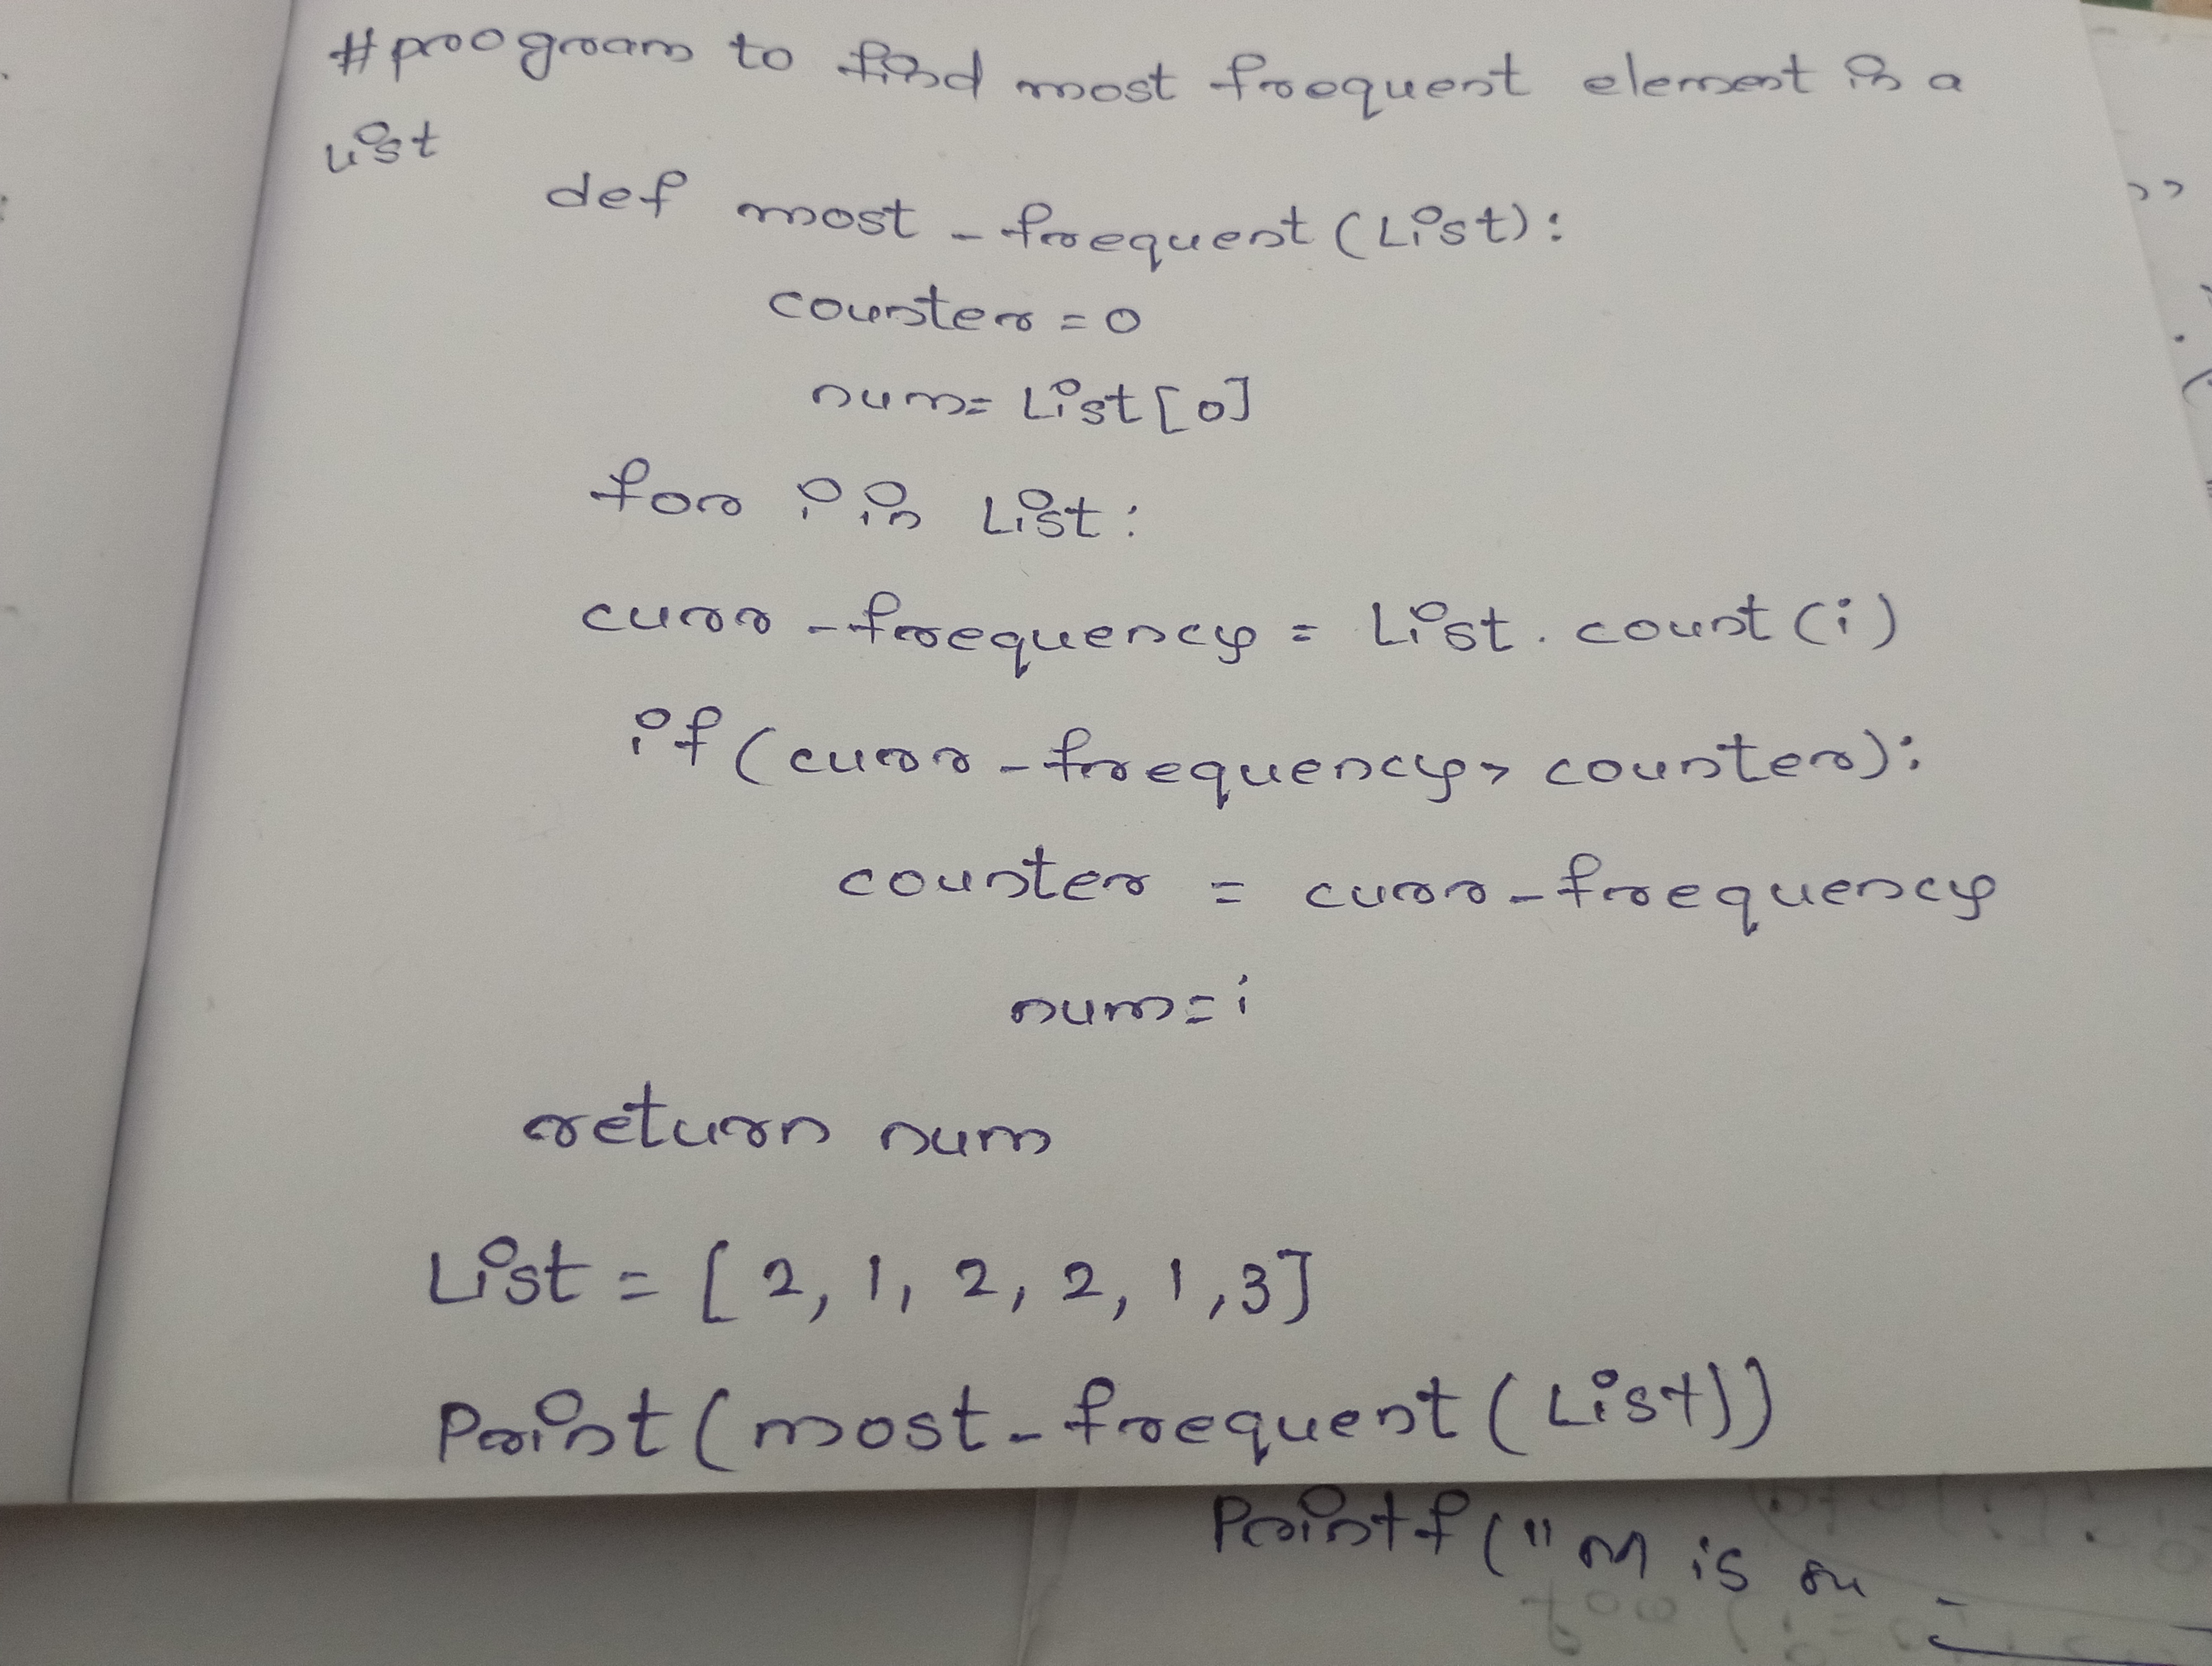 #program to find most frequent element in a
list
def most-frequent(List):
counter = 0
num= List[0]
for i in List:
curr-frequency = List.count(i)
if(curr-frequency> counter):
counter = curr-frequency
num=i
return num
List = [2,1,2,2,1,3]
Print(most-frequent(List))
Printf("M is